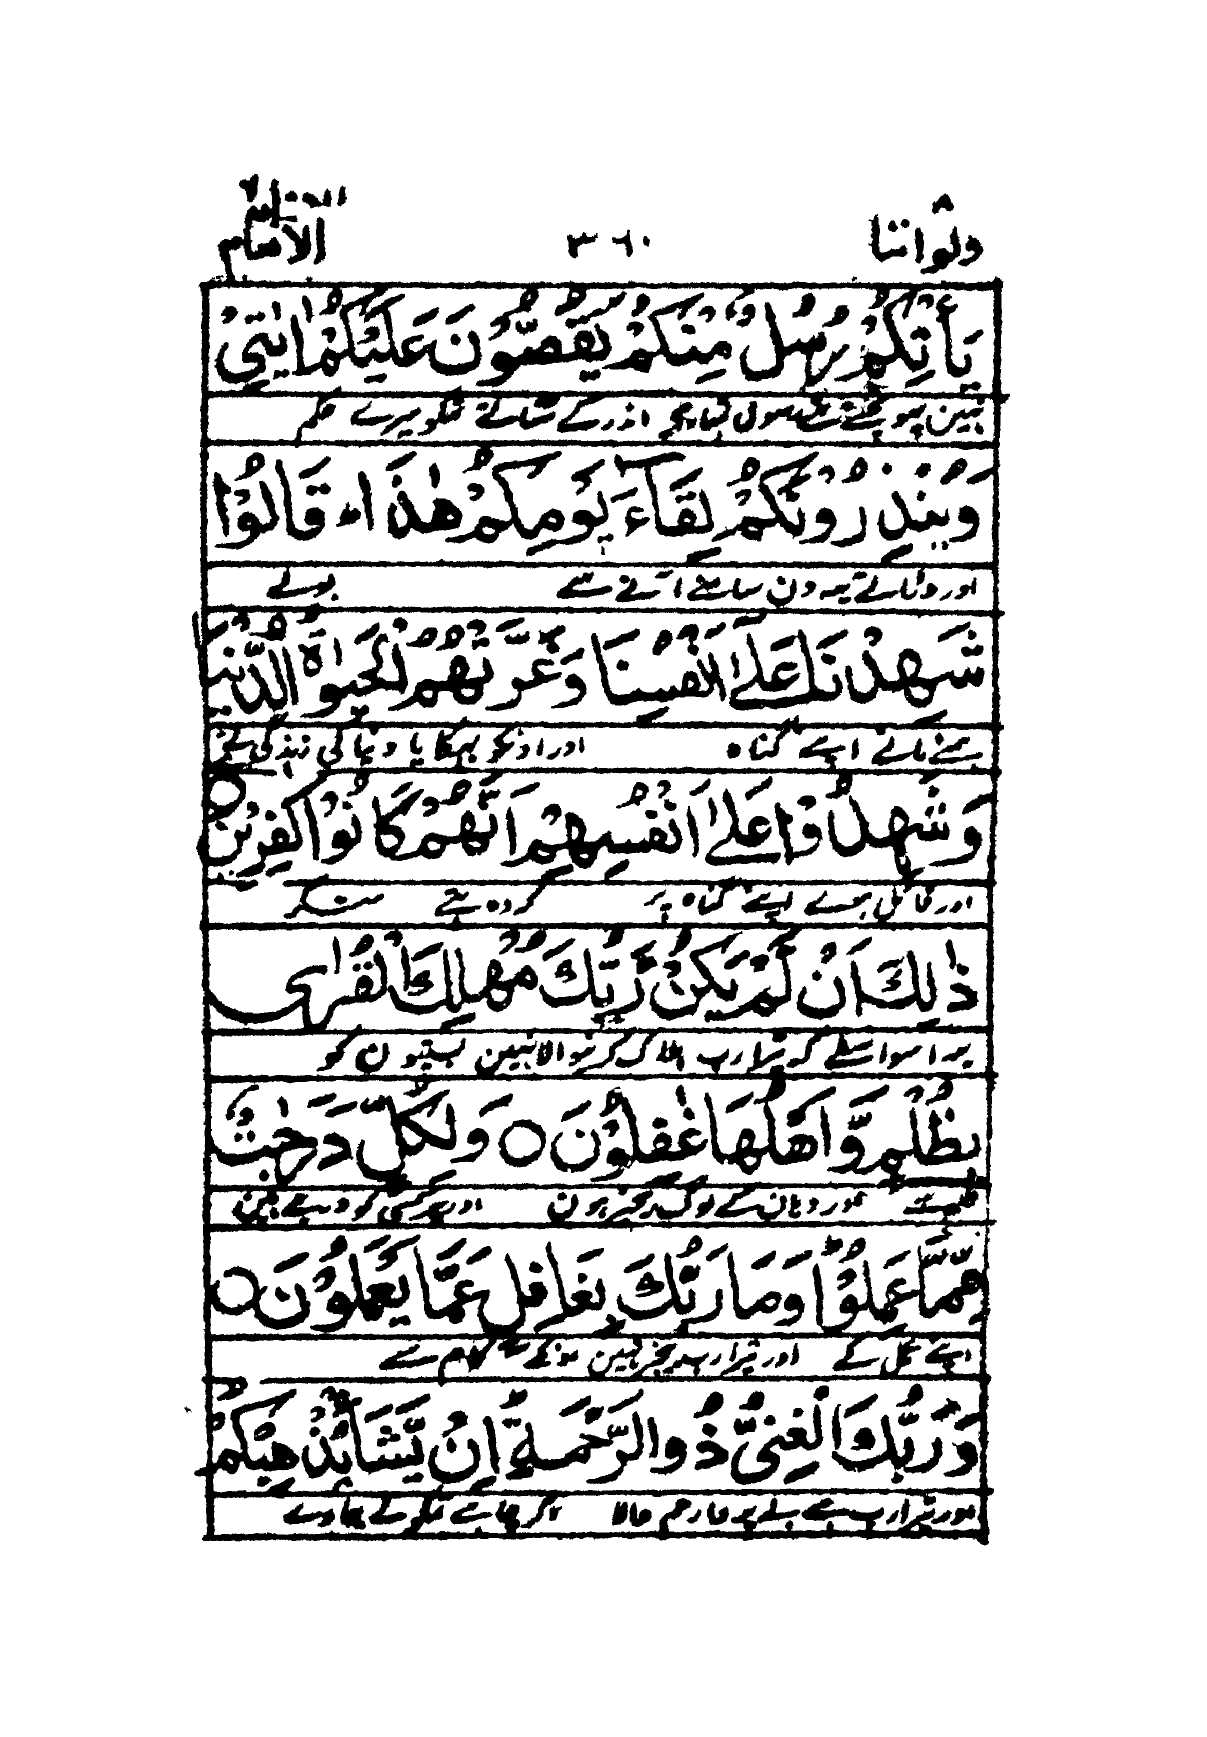 ولواننا ٨ ٣٦٠ الانعام ٦
يَأْتِكُمْ رُسُلٌ مِّنْكُمْ يَقُصُّوْنَ عَلَيْكُمْ اٰيٰتِيْ
نہیں پہونچے تھے تمکو رسول تمہارے اندر کے سناتے تمکو میرے حکم
وَيُنْذِرُوْنَكُمْ لِقَآءَ يَوْمِكُمْ هٰذَا ؕ قَالُوْا
اور ڈراتے یہہ دن سامنے آنے سے بولے
شَهِدْنَا عَلٰٓى اَنْفُسِنَا وَغَرَّتْهُمُ الْحَيٰوةُ الدُّنْيَا
ہمنے مانے اپنے گناہ اور اونکو بہکایا دنیا کی زندگی نے
وَشَهِدُوْا عَلٰٓى اَنْفُسِهِمْ اَنَّهُمْ كَانُوْا كٰفِرِيْنَ ○
اور قائل ہوے اپنے گناہ پر کہ وہ تھے منکر
ذٰلِكَ اَنْ لَّمْ يَكُنْ رَّبُّكَ مُهْلِكَ الْقُرٰى
یہہ اسواسطے کہ تیرا رب ہلاک کرنیوالا نہین بستیون کو
بِظُلْمٍ وَّاَهْلُهَا غٰفِلُوْنَ ○ وَلِكُلٍّ دَرَجٰتٌ
ظلم سے اور وہان کے لوگ بےخبر ہون اور ہر کسی کو درجے ہین
مِّمَّا عَمِلُوْا ؕ وَمَا رَبُّكَ بِغَافِلٍ عَمَّا يَعْمَلُوْنَ ○
اپنے عمل کے اور تیرا رب بےخبر نہین اونکے کام سے
وَرَبُّكَ الْغَنِيُّ ذُو الرَّحْمَةِ ؕ اِنْ يَّشَاْ يُذْهِبْكُمْ
اور تیرا رب ہے بے پروا رحم والا اگر چاہے تمکو لے جاوے